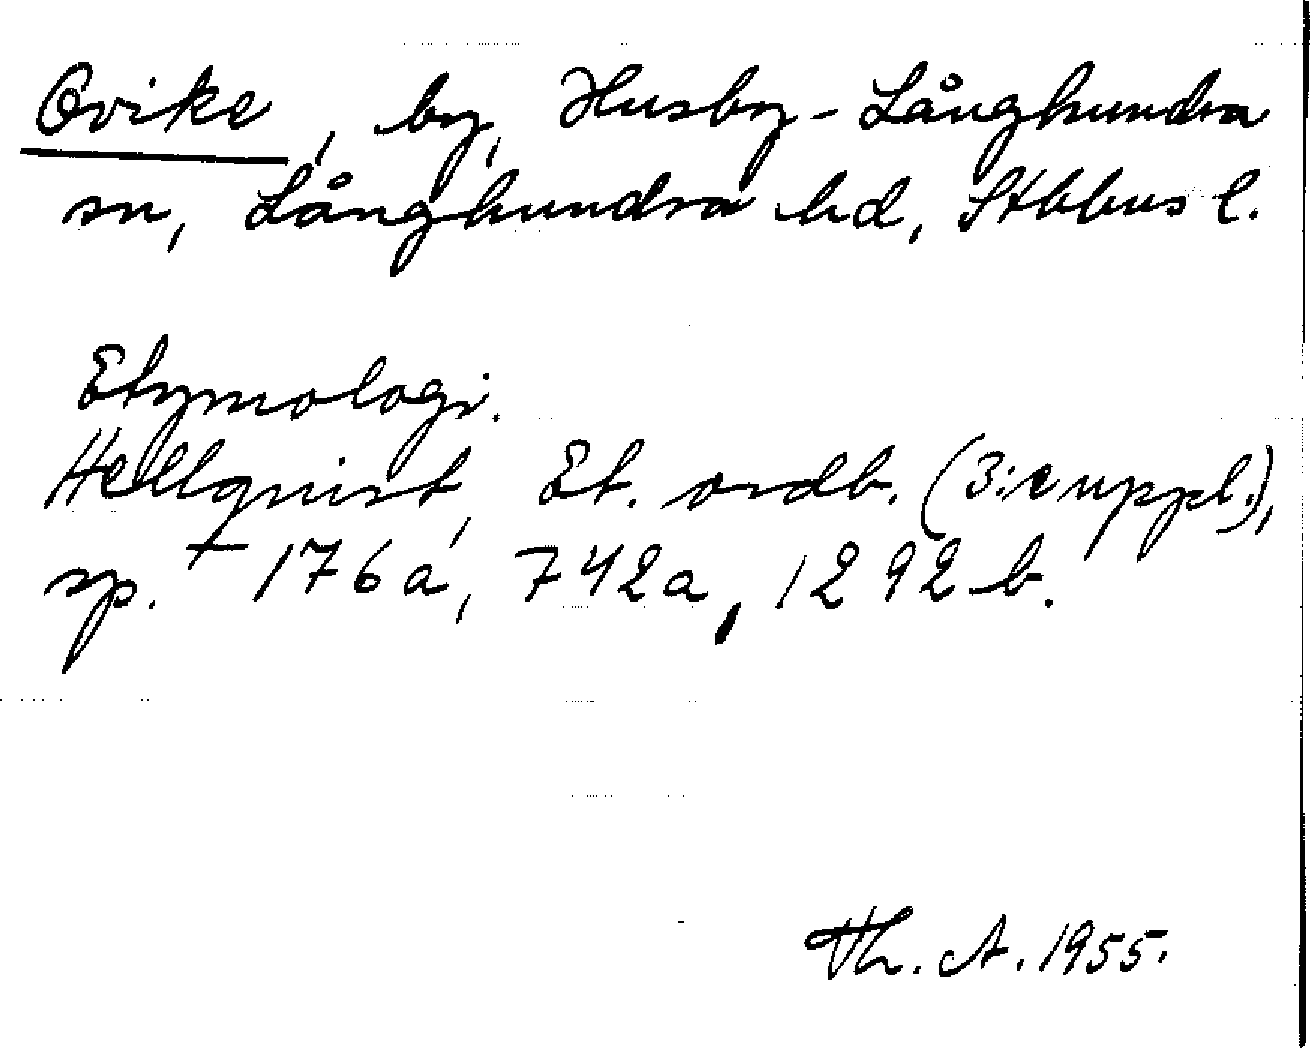 Ovike, by, Husby-Långhundra
sn, Långhundra hd, Sthbus l.
Etymologi.
Hellquist, Et. ordb. (3:e uppl.),
sp. 176a, 742a, 1292b.
Th. A. 1955.